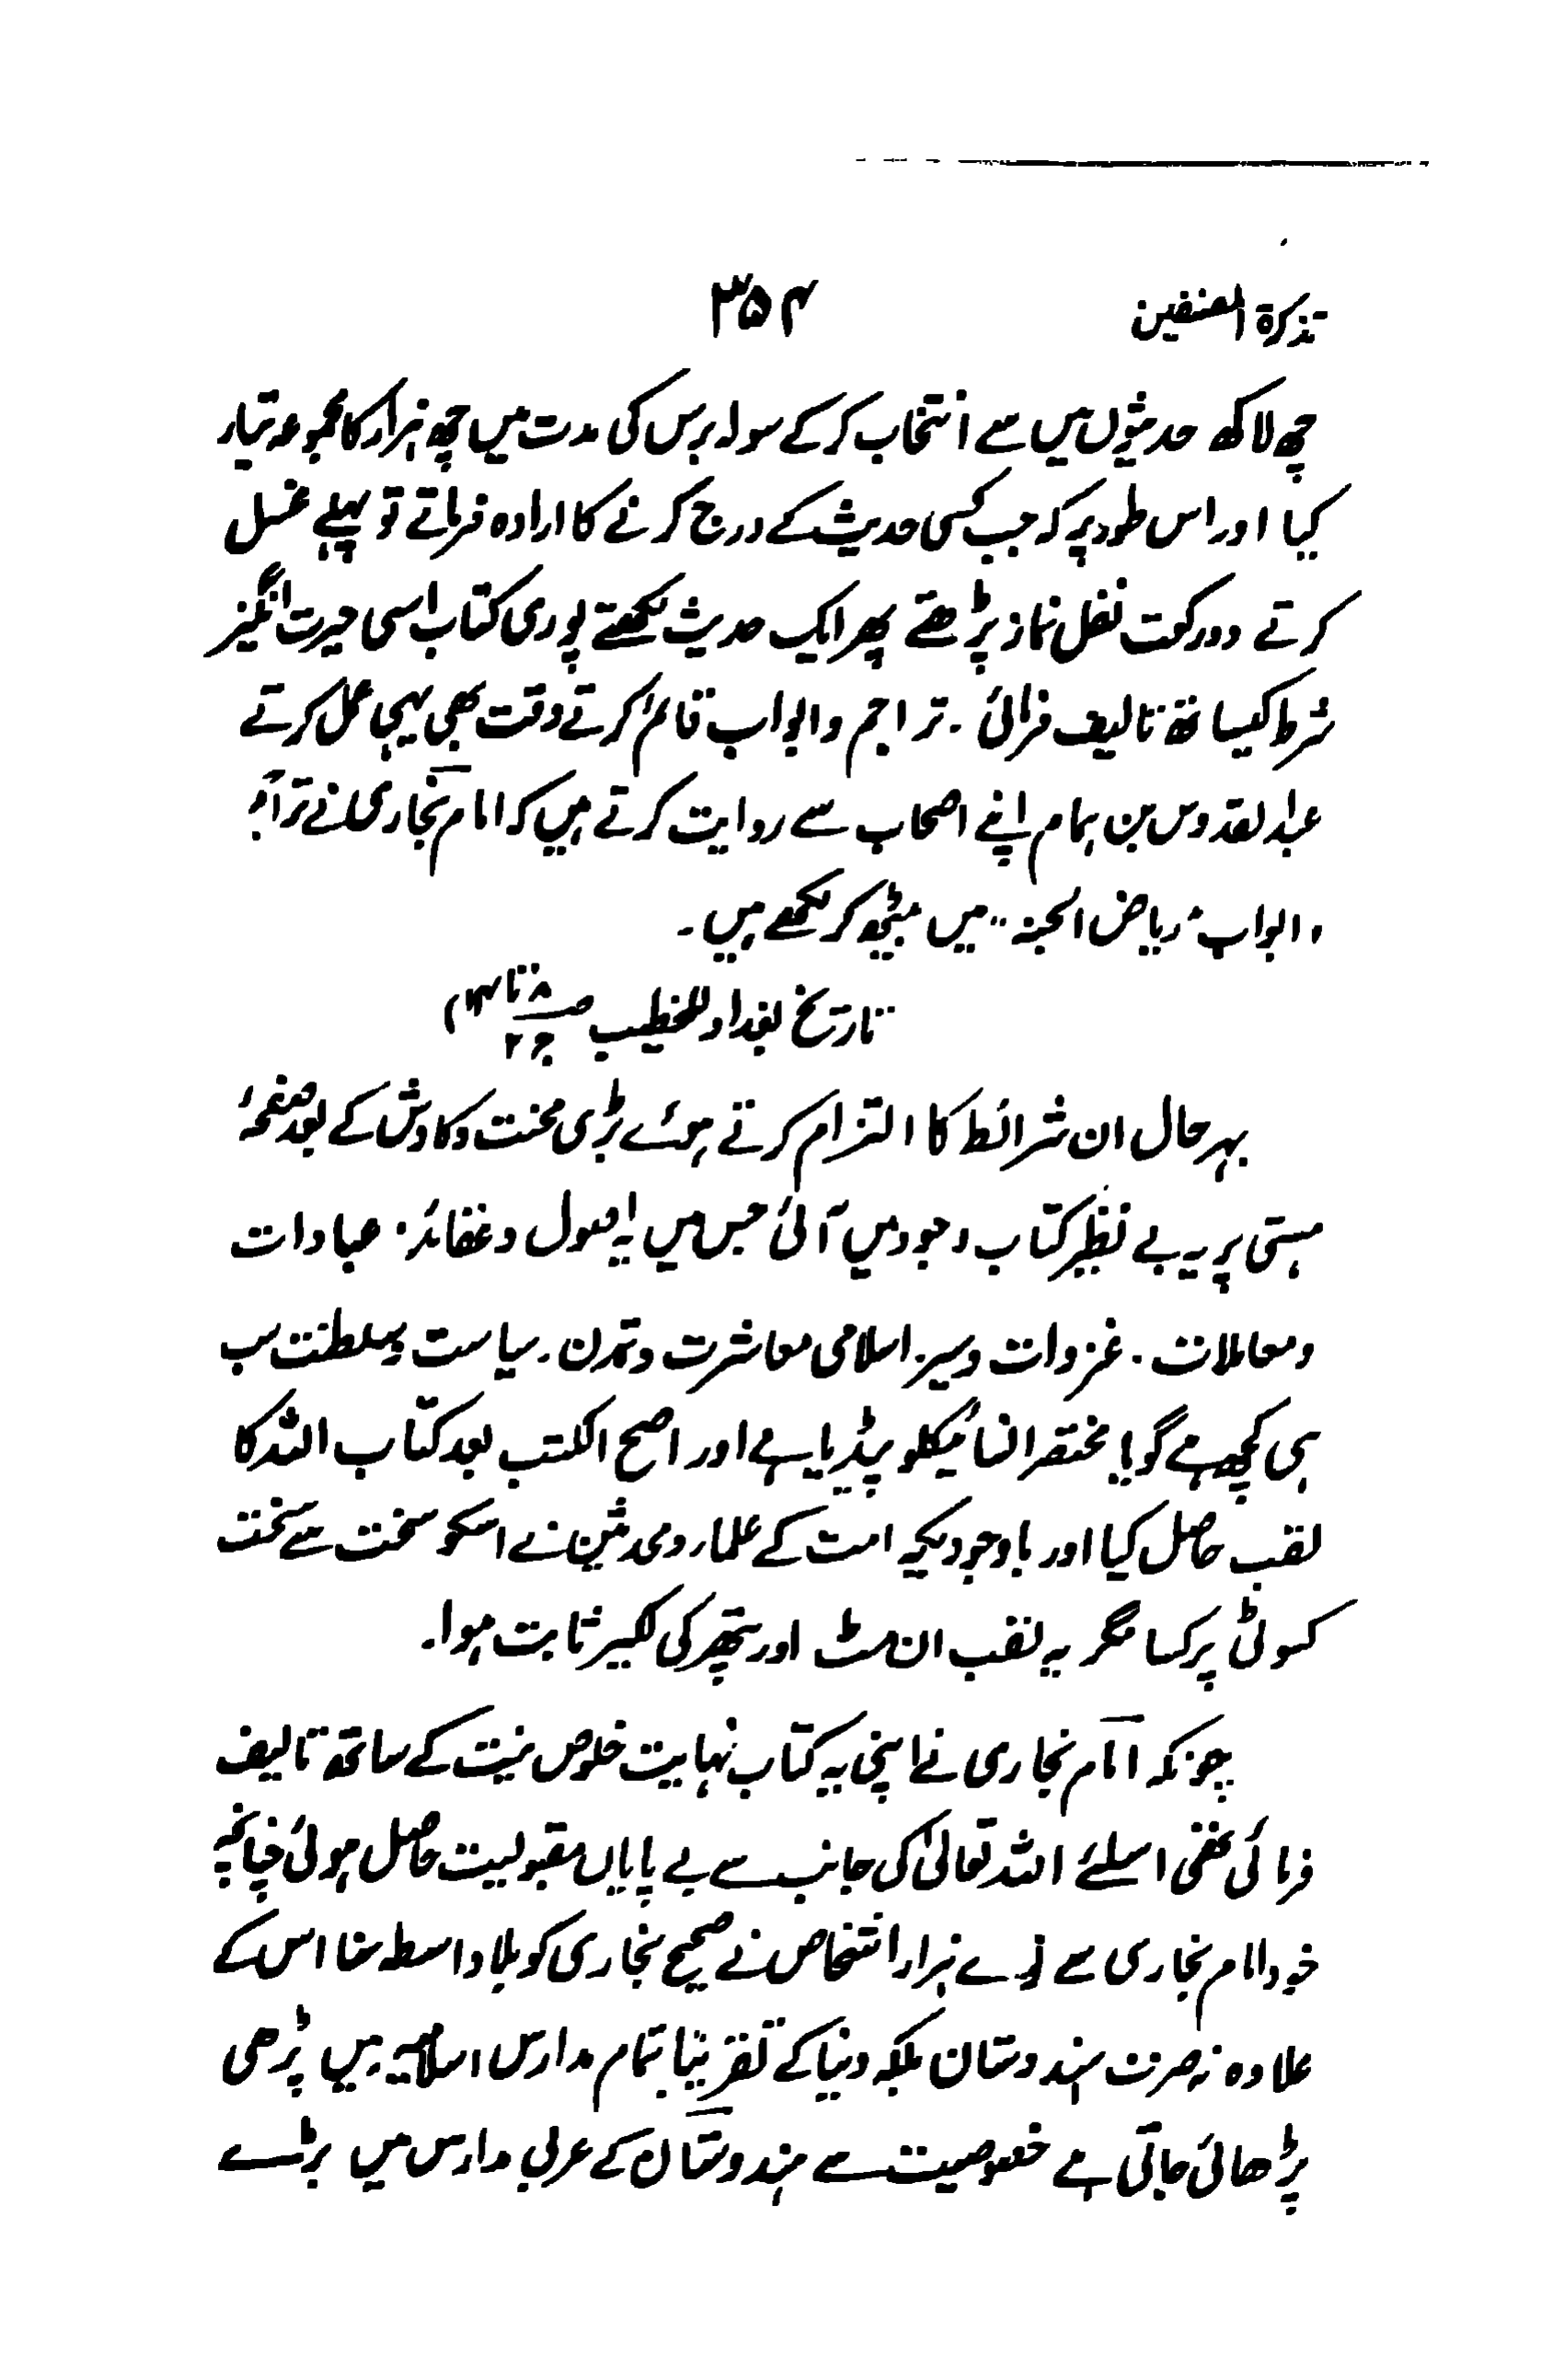 تذکرۃ المصنفین ۳۵۴
چھ لاکھ حدیثوں میں سے انتخاب کر کے سولہ برس کی مدت میں چھ ہزار کا مجموعہ تیار
کیا اور اس طور پر کہ جب کسی حدیث کے درج کرنے کا ارادہ فرماتے تو پہلے غسل
کرتے دو رکعت نفل نماز پڑھتے پھر ایک حدیث لکھتے پوری کتاب اسی حیرت انگیز
شرط کیساتھ تالیف فرمائی ۔ تراجم و ابواب قائم کرتے وقت بھی یہی عمل کرتے
عبدالقدوس بن ہمام اپنے اصحاب سے روایت کرتے ہیں کہ امام بخاری نے تراجم
و ابواب "ریاض الجنۃ" میں بیٹھ کر لکھے ہیں ۔
تاریخ بغداد للخطیب ص ۸ تا ج ۲
بہرحال ان شرائط کا التزام کرتے ہوئے بڑی محنت و کاوش کے بعد صفحۂ
ہستی پر یہ بے نظیر کتاب وجود میں آئی جس میں اصول و عقائد ۰ عبادات
و معاملات ۔ غزوات و سیر ۔ اسلامی معاشرت و تمدن ۔ سیاست و سلطنت سب
ہی کچھ ہے گویا مختصر انسائیکلو پیڈیا ہے اور اصح الکتب بعد کتاب اللہ کا
لقب حاصل کیا اور باوجودیکہ امت کے علماء و محدثین نے اسکو سخت سے سخت
کسوٹی پر کسا مگر یہ لقب ان مٹ اور پتھر کی لکیر ثابت ہوا ۔
چونکہ امام بخاری نے اپنی یہ کتاب نہایت خلوص نیت کے ساتھ تالیف
فرمائی تھی اسلئے اللہ تعالیٰ کی جانب سے بے پایاں مقبولیت حاصل ہوئی چنانچہ
خود امام بخاری سے نوے ہزار اشخاص نے صحیح بخاری کو بلا واسطہ سنا اس کے
علاوہ نہ صرف ہندوستان بلکہ دنیا کے تقریباً تمام مدارس اسلامیہ میں پڑھی
پڑھائی جاتی ہے خصوصیت سے ہندوستان کے عربی مدارس میں بڑے